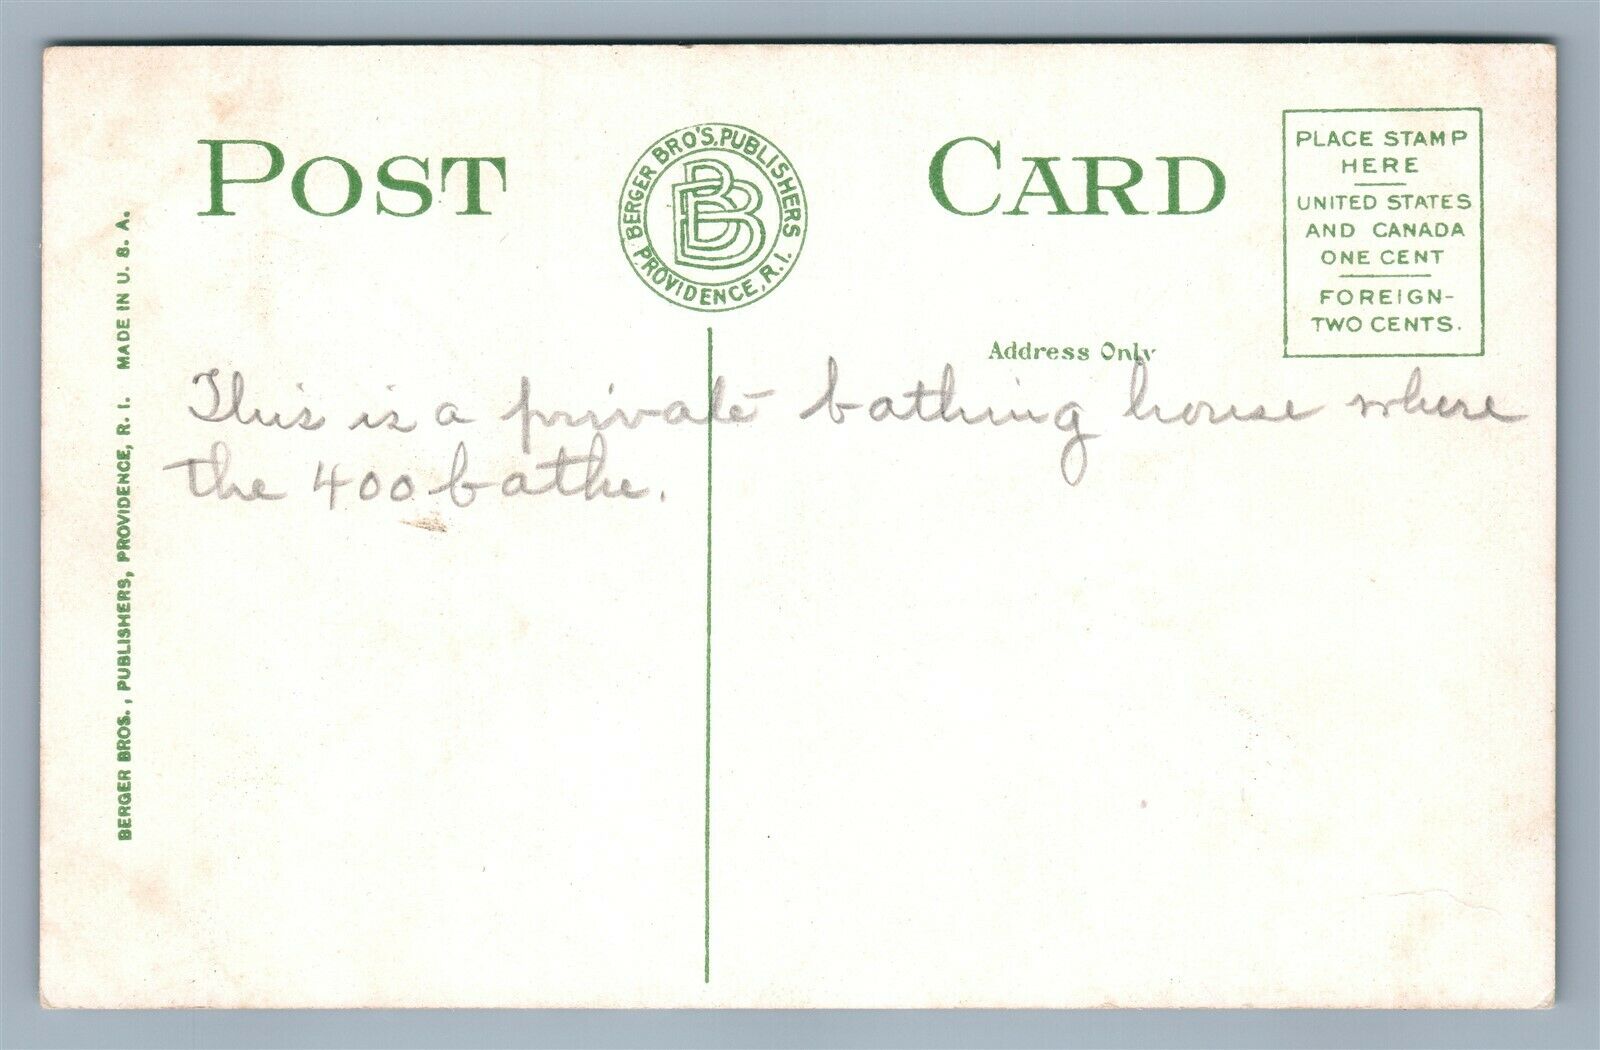 POST CARD
BERGER BRO'S. PUBLISHERS
PROVIDENCE, R.I.
BBB
PLACE STAMP
HERE
UNITED STATES
AND CANADA
ONE CENT
FOREIGN-
TWO CENTS.
Address Only
This is a private bathing house where
the 400 bathe.
BERGER BROS., PUBLISHERS, PROVIDENCE, R. I. MADE IN U. S. A.